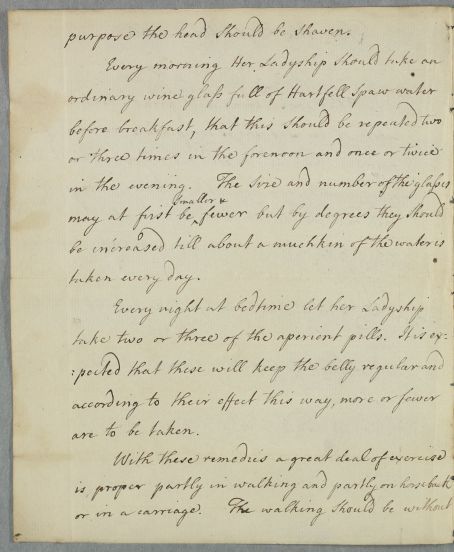 purpose the head should be shaven.
Every morning Her Ladyship should take an
ordinary wine glass full of Hartfell Spaw water
before breakfast, that this should be repeated two
or three times in the forenoon and once or twice
in the evening. The size and number of the glasses
may at first be smaller & fewer but by degrees they should
be increased till about a muchkin of the water is
taken every day.
Every night at bedtime let her Ladyship
take two or three of the aperient pills. It is ex-
:pected that these will keep the belly regular and
according to their effect this way, more or fewer
are to be taken.
With these remedies a great deal of exercise
is proper partly in walking and partly on horseback
or in a carriage. The walking should be without